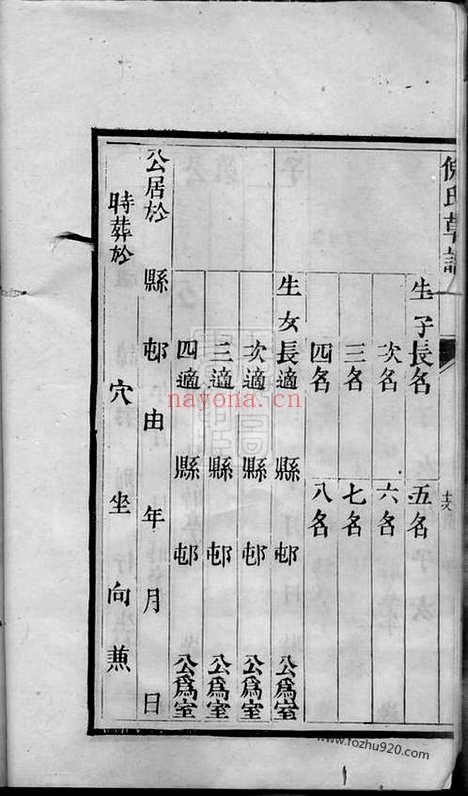 氏草譜
生子長名 五名
次名 六名
三名 七名
四名 八名
生女長適 縣 邨 公爲室
次適 縣 邨 公爲室
三適 縣 邨 公爲室
四適 縣 邨 公爲室
公居於 縣 邨由 年 月 日
時葬於 穴 坐 向 兼
nayona.cn
www.fozhu920.com